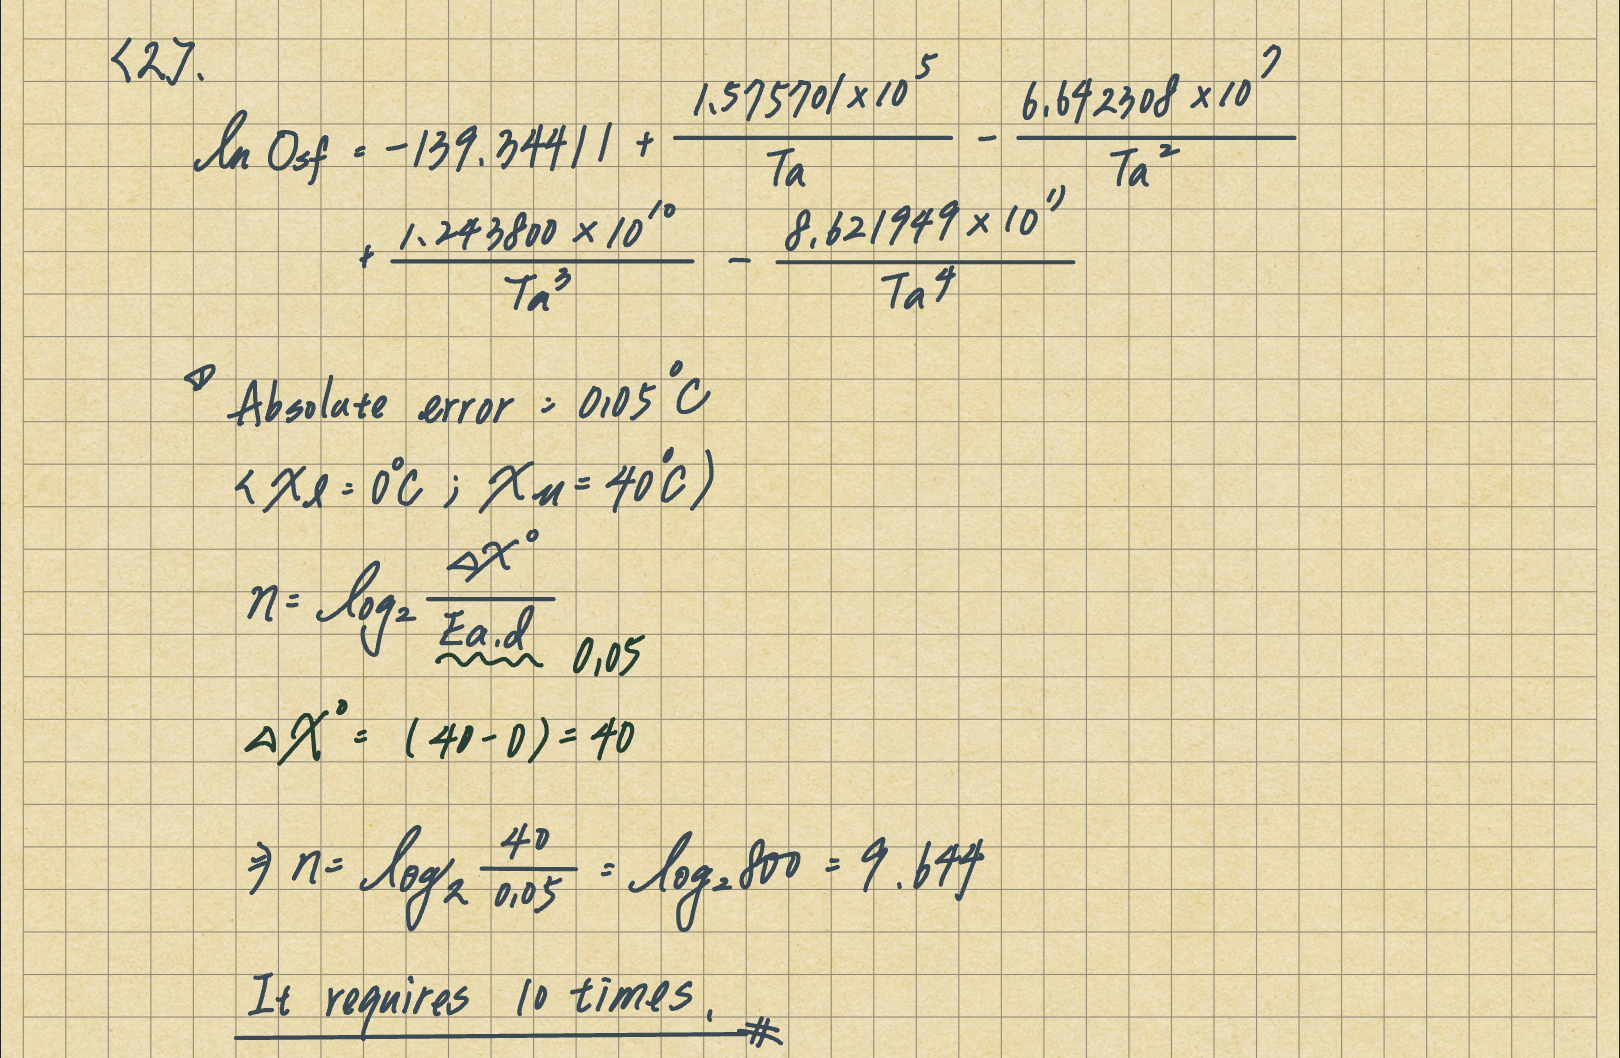 <2>.
ln Osf = -139.34411 + 1.575701×10^5 / Ta - 6.642308×10^7 / Ta^2
+ 1.243800×10^10 / Ta^3 - 8.621949×10^11 / Ta^4
Absolute error = 0.05°C
<Xl = 0°C ; Xu = 40°C)
n = log₂ ΔX° / Ea.d 0.05
ΔX° = (40-0) = 40
⇒ n = log₂ 40 / 0.05 = log₂ 800 = 9.644
It requires 10 times. #